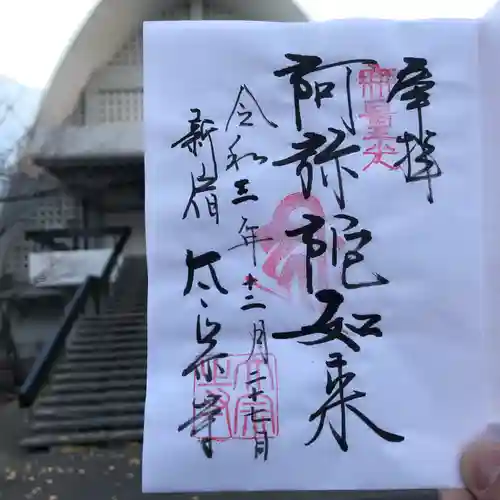 奉拝
阿弥陀如来
令和三年十二月二十七日
新宿太宗寺